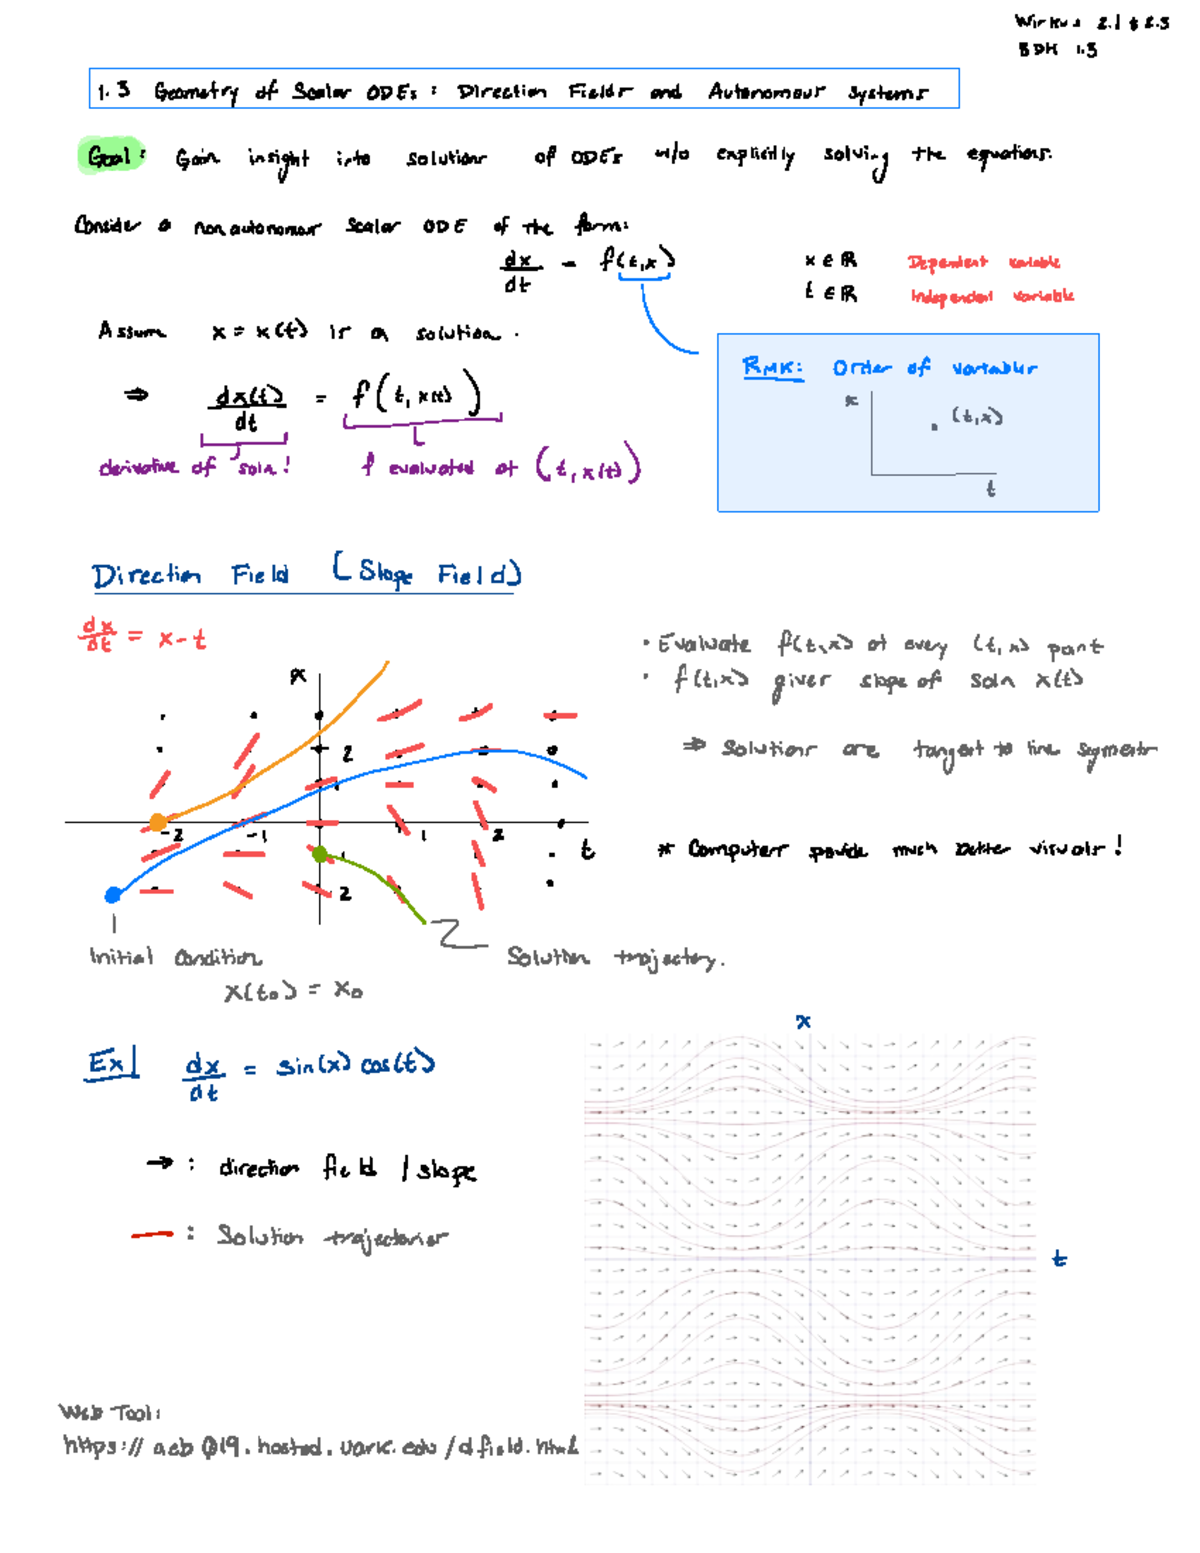 Wirkus 2.1 & 2.3
BDH 1.3
1.3 Geometry of Scalar ODEs: Direction Fields and Autonomous Systems
Goal: Gain insight into solutions of ODEs w/o explicitly solving the equations.
Consider a nonautonomous Scalar ODE of the form:
dx/dt = f(t,x)
x ∈ ℝ Dependent variable
t ∈ ℝ Independent variable
Assume x = x(t) is a solution.
⇒ dx(t)/dt = f(t, x(t))
derivative of soln! f evaluated at (t, x(t))
RMK: Order of variables
x
(t,x)
t
Direction Field (Slope Field)
dx/dt = x - t
• Evaluate f(t,x) at every (t,x) point
• f(t,x) gives slope of soln x(t)
⇒ Solutions are tangent to line segments
* Computers provide much better visuals!
x
2
1
-2 -1 1 2 t
1
2
Initial Condition
x(t₀) = x₀
Solution trajectory.
Ex] dx/dt = sin(x) cos(t)
→ : direction field / slope
— : Solution trajectories
x
t
Web Tool:
https://aeb019.hosted.uark.edu/dfield.html